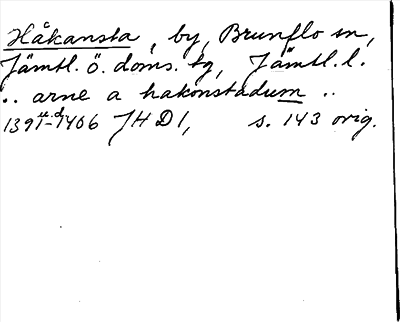 Håkansta, by, Brunflo sn,
Jämtl. ö. doms. tg, Jämtl. l.
.. arne a hakonstadum ..
1391-1406 JHD1, s. 143 orig.
u. d.